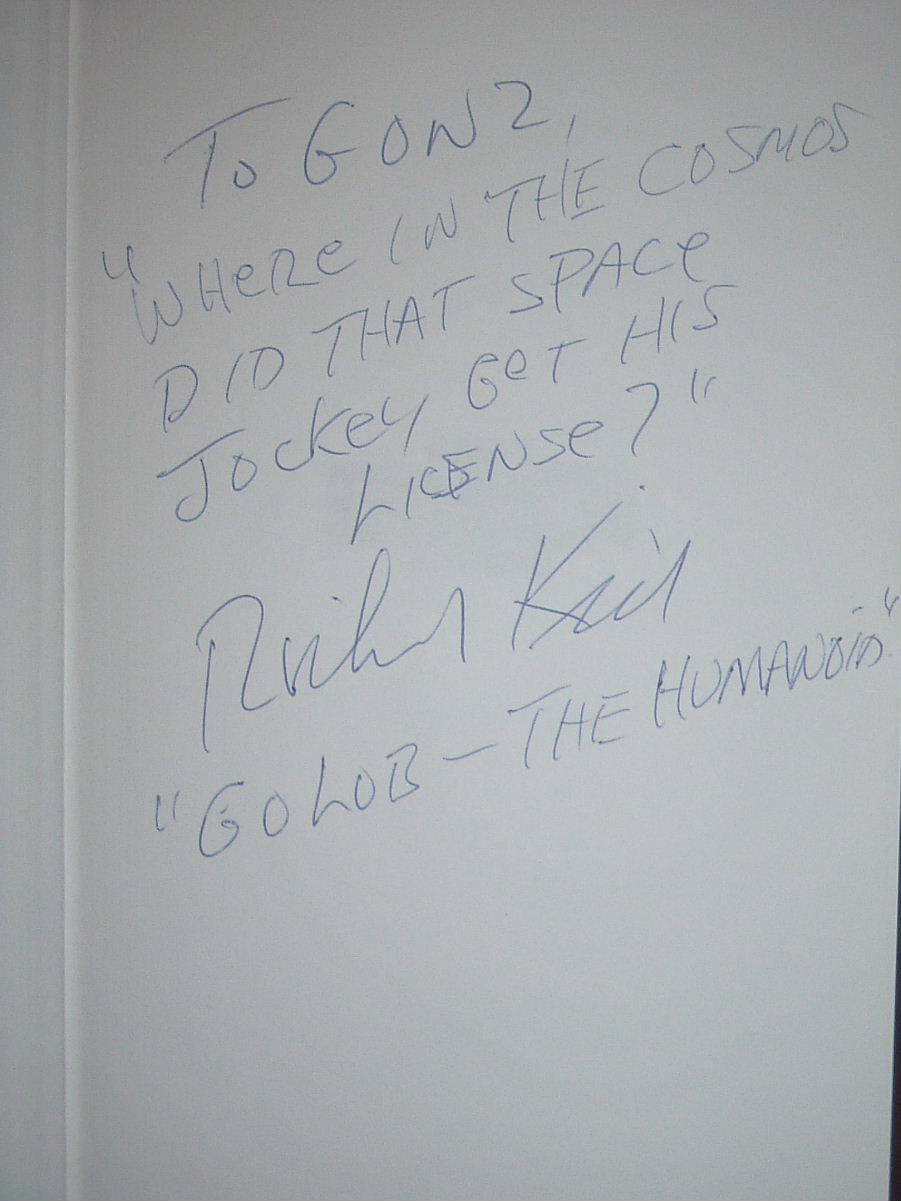 To GONZ,
"WHERE IN THE COSMOS
DID THAT SPACE
JOCKEY GET HIS
LICENSE?"
Richard Kiel
"GOLOB - THE HUMANOID"